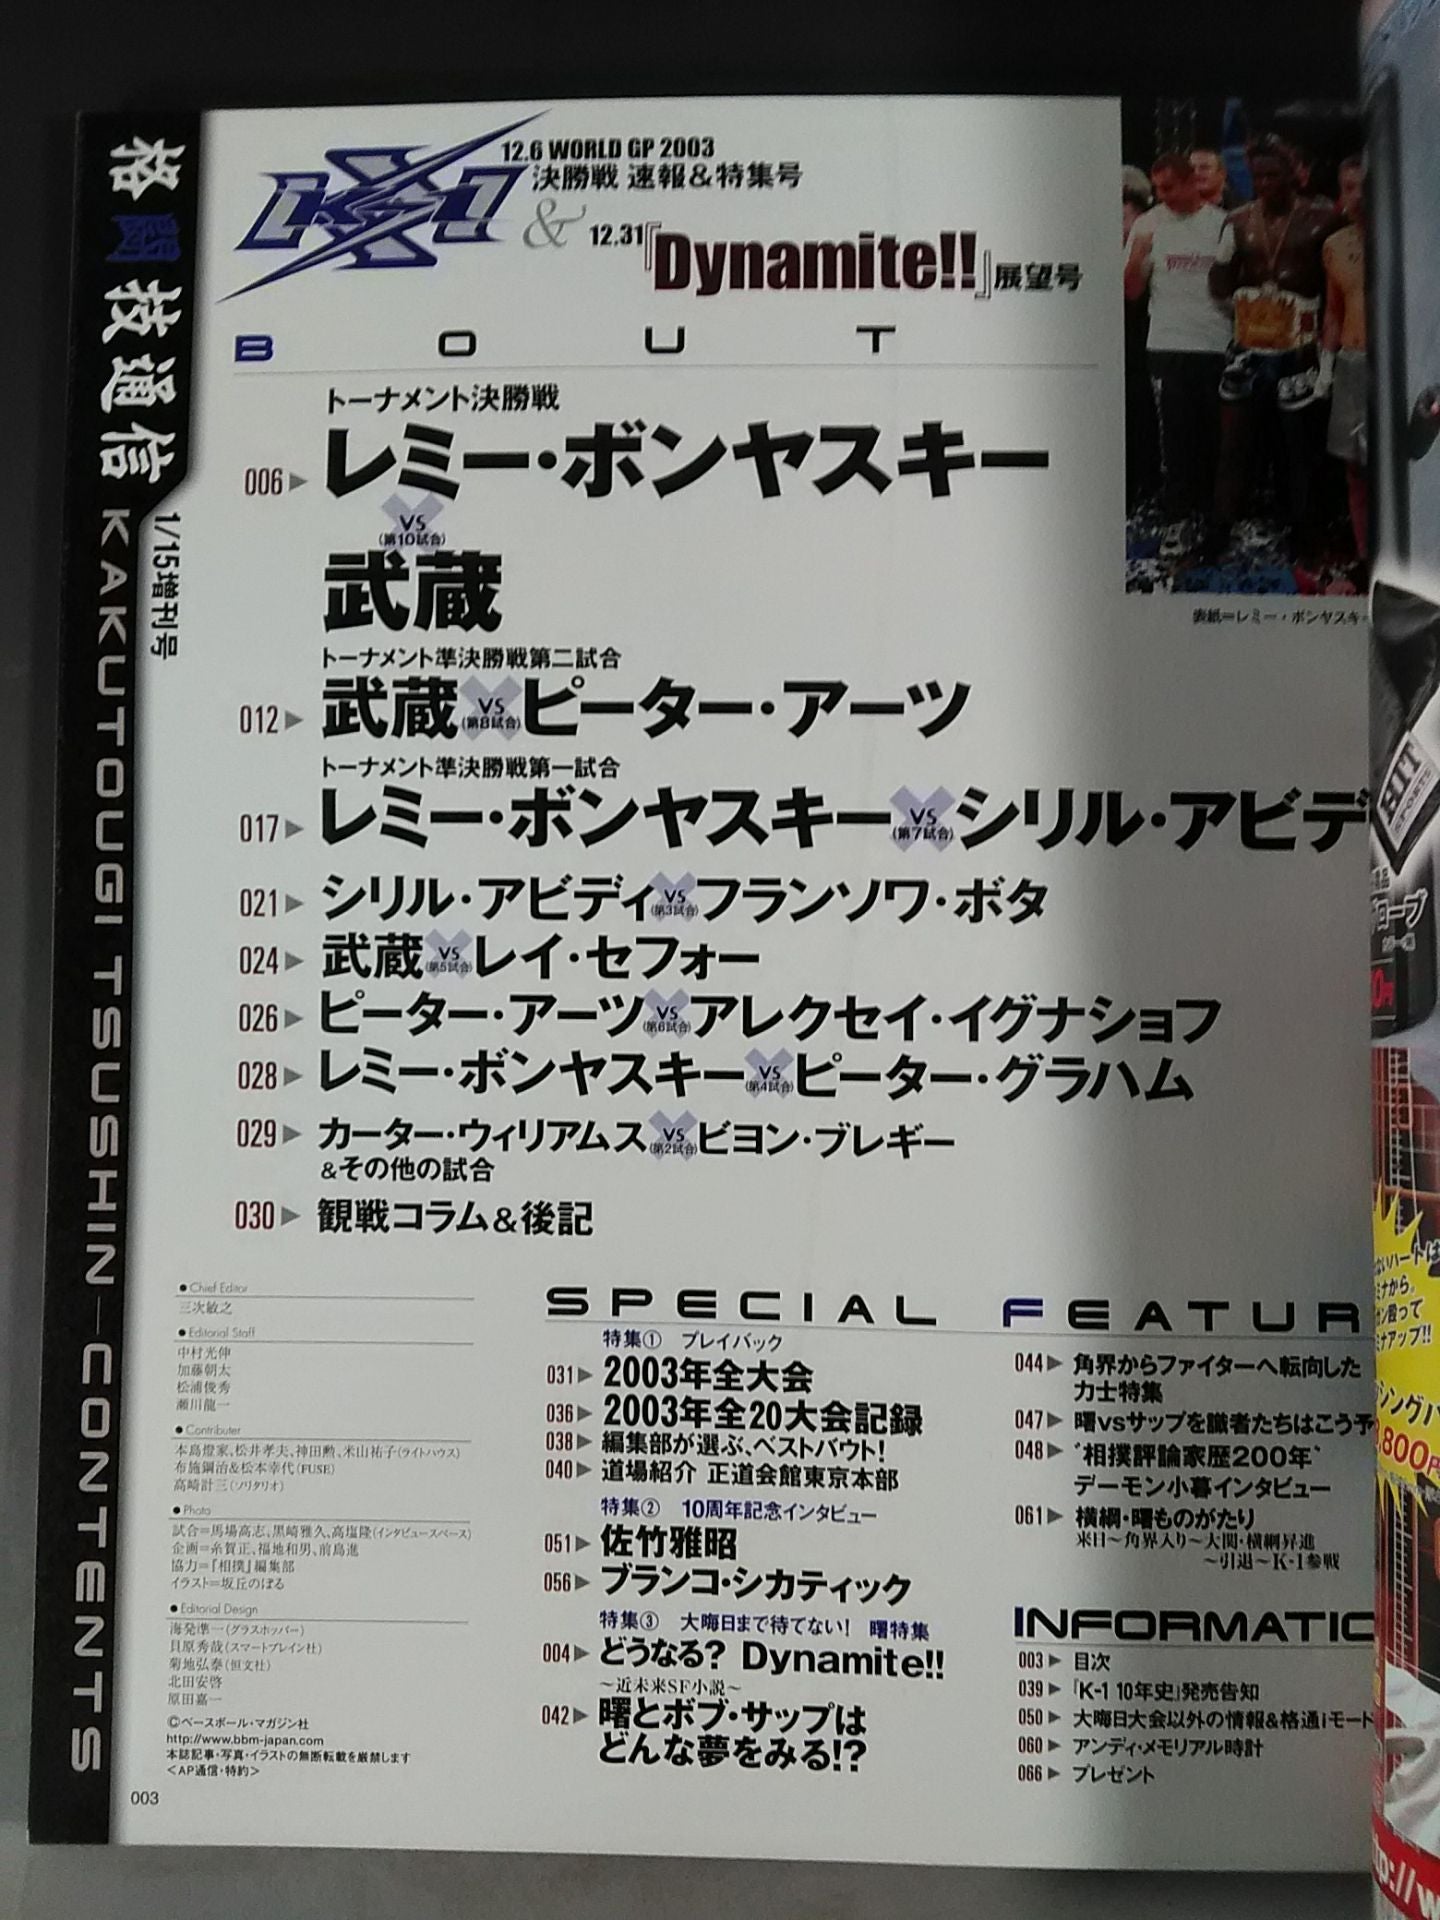 格闘技通信 KAKUTOUGI TSUSHIN—CONTENTS
1/15増刊号
K-1
12.6 WORLD GP 2003
決勝戦 速報&特集号
&
12.31『Dynamite!!』展望号
BOUT
トーナメント決勝戦
006▶レミー・ボンヤスキー
VS
(第10試合)
武蔵
トーナメント準決勝戦第二試合
012▶武蔵VS(第8試合)ピーター・アーツ
トーナメント準決勝戦第一試合
017▶レミー・ボンヤスキーVS(第7試合)シリル・アビデ
021▶シリル・アビディVS(第3試合)フランソワ・ボタ
024▶武蔵VS(第5試合)レイ・セフォー
026▶ピーター・アーツVS(第6試合)アレクセイ・イグナショフ
028▶レミー・ボンヤスキーVS(第4試合)ピーター・グラハム
029▶カーター・ウィリアムスVS(第2試合)ビヨン・ブレギー
&その他の試合
030▶観戦コラム&後記
表紙=レミー・ボンヤスキ
●Chief Editor
三次敏之
●Editorial Staff
中村光伸
加藤朝太
松浦俊秀
瀬川龍一
●Contributer
本島燈家、松井孝夫、神田勲、米山祐子(ライトハウス)
布施鋼治&松本幸代(FUSE)
高崎計三(ソリタリオ)
●Photo
試合=馬場高志、黒崎雅久、高塩隆(インタビュースペース)
企画=糸賀正、福地和男、前島進
協力=『相撲』編集部
イラスト=坂丘のぼる
●Editorial Design
海発準一(グラスホッパー)
貝原秀哉(スマートブレイン社)
菊地弘泰(恒文社)
北田安啓
原田嘉一
©ベースボール・マガジン社
http://www.bbm-japan.com
本誌記事・写真・イラストの無断転載を厳禁します
<AP通信・特約>
003
SPECIAL FEATUR
特集① プレイバック
031▶2003年全大会
036▶2003年全20大会記録
038▶編集部が選ぶ、ベストバウト!
040▶道場紹介 正道会館東京本部
特集② 10周年記念インタビュー
051▶佐竹雅昭
056▶ブランコ・シカティック
特集③ 大晦日まで待てない! 曙特集
004▶どうなる? Dynamite!!
〜近未来SF小説〜
042▶曙とボブ・サップは
どんな夢をみる!?
044▶角界からファイターへ転向した
力士特集
047▶曙vsサップを識者たちはこう予
048▶“相撲評論家歴200年”
デーモン小暮インタビュー
061▶横綱・曙ものがたり
来日〜角界入り〜大関・横綱昇進
〜引退〜K-1参戦
INFORMATIO
003▶目次
039▶『K-1 10年史』発売告知
050▶大晦日大会以外の情報&格通iモード
060▶アンディ・メモリアル時計
066▶プレゼント
HIT
SPORTS